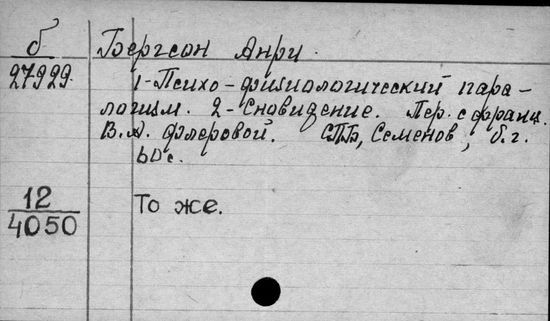 б Бергсон Анри.
27929. 1-Психо-физиологический пара-
логизм. 2-Сновидение. Пер. с франц.
В.А. Флеровой. СПБ, Семенов, б.г.
60 с.
12 То же.
4050